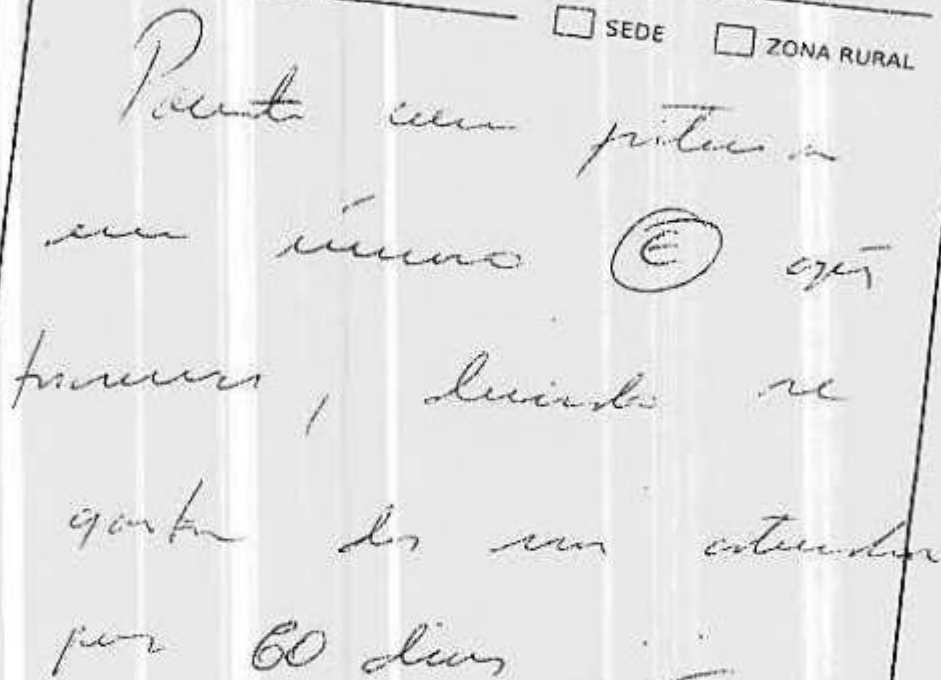 SEDE ZONA RURAL
Paciente com fratura
em úmero Ⓔ após
, devendo se
afastar das suas
por 60 dias